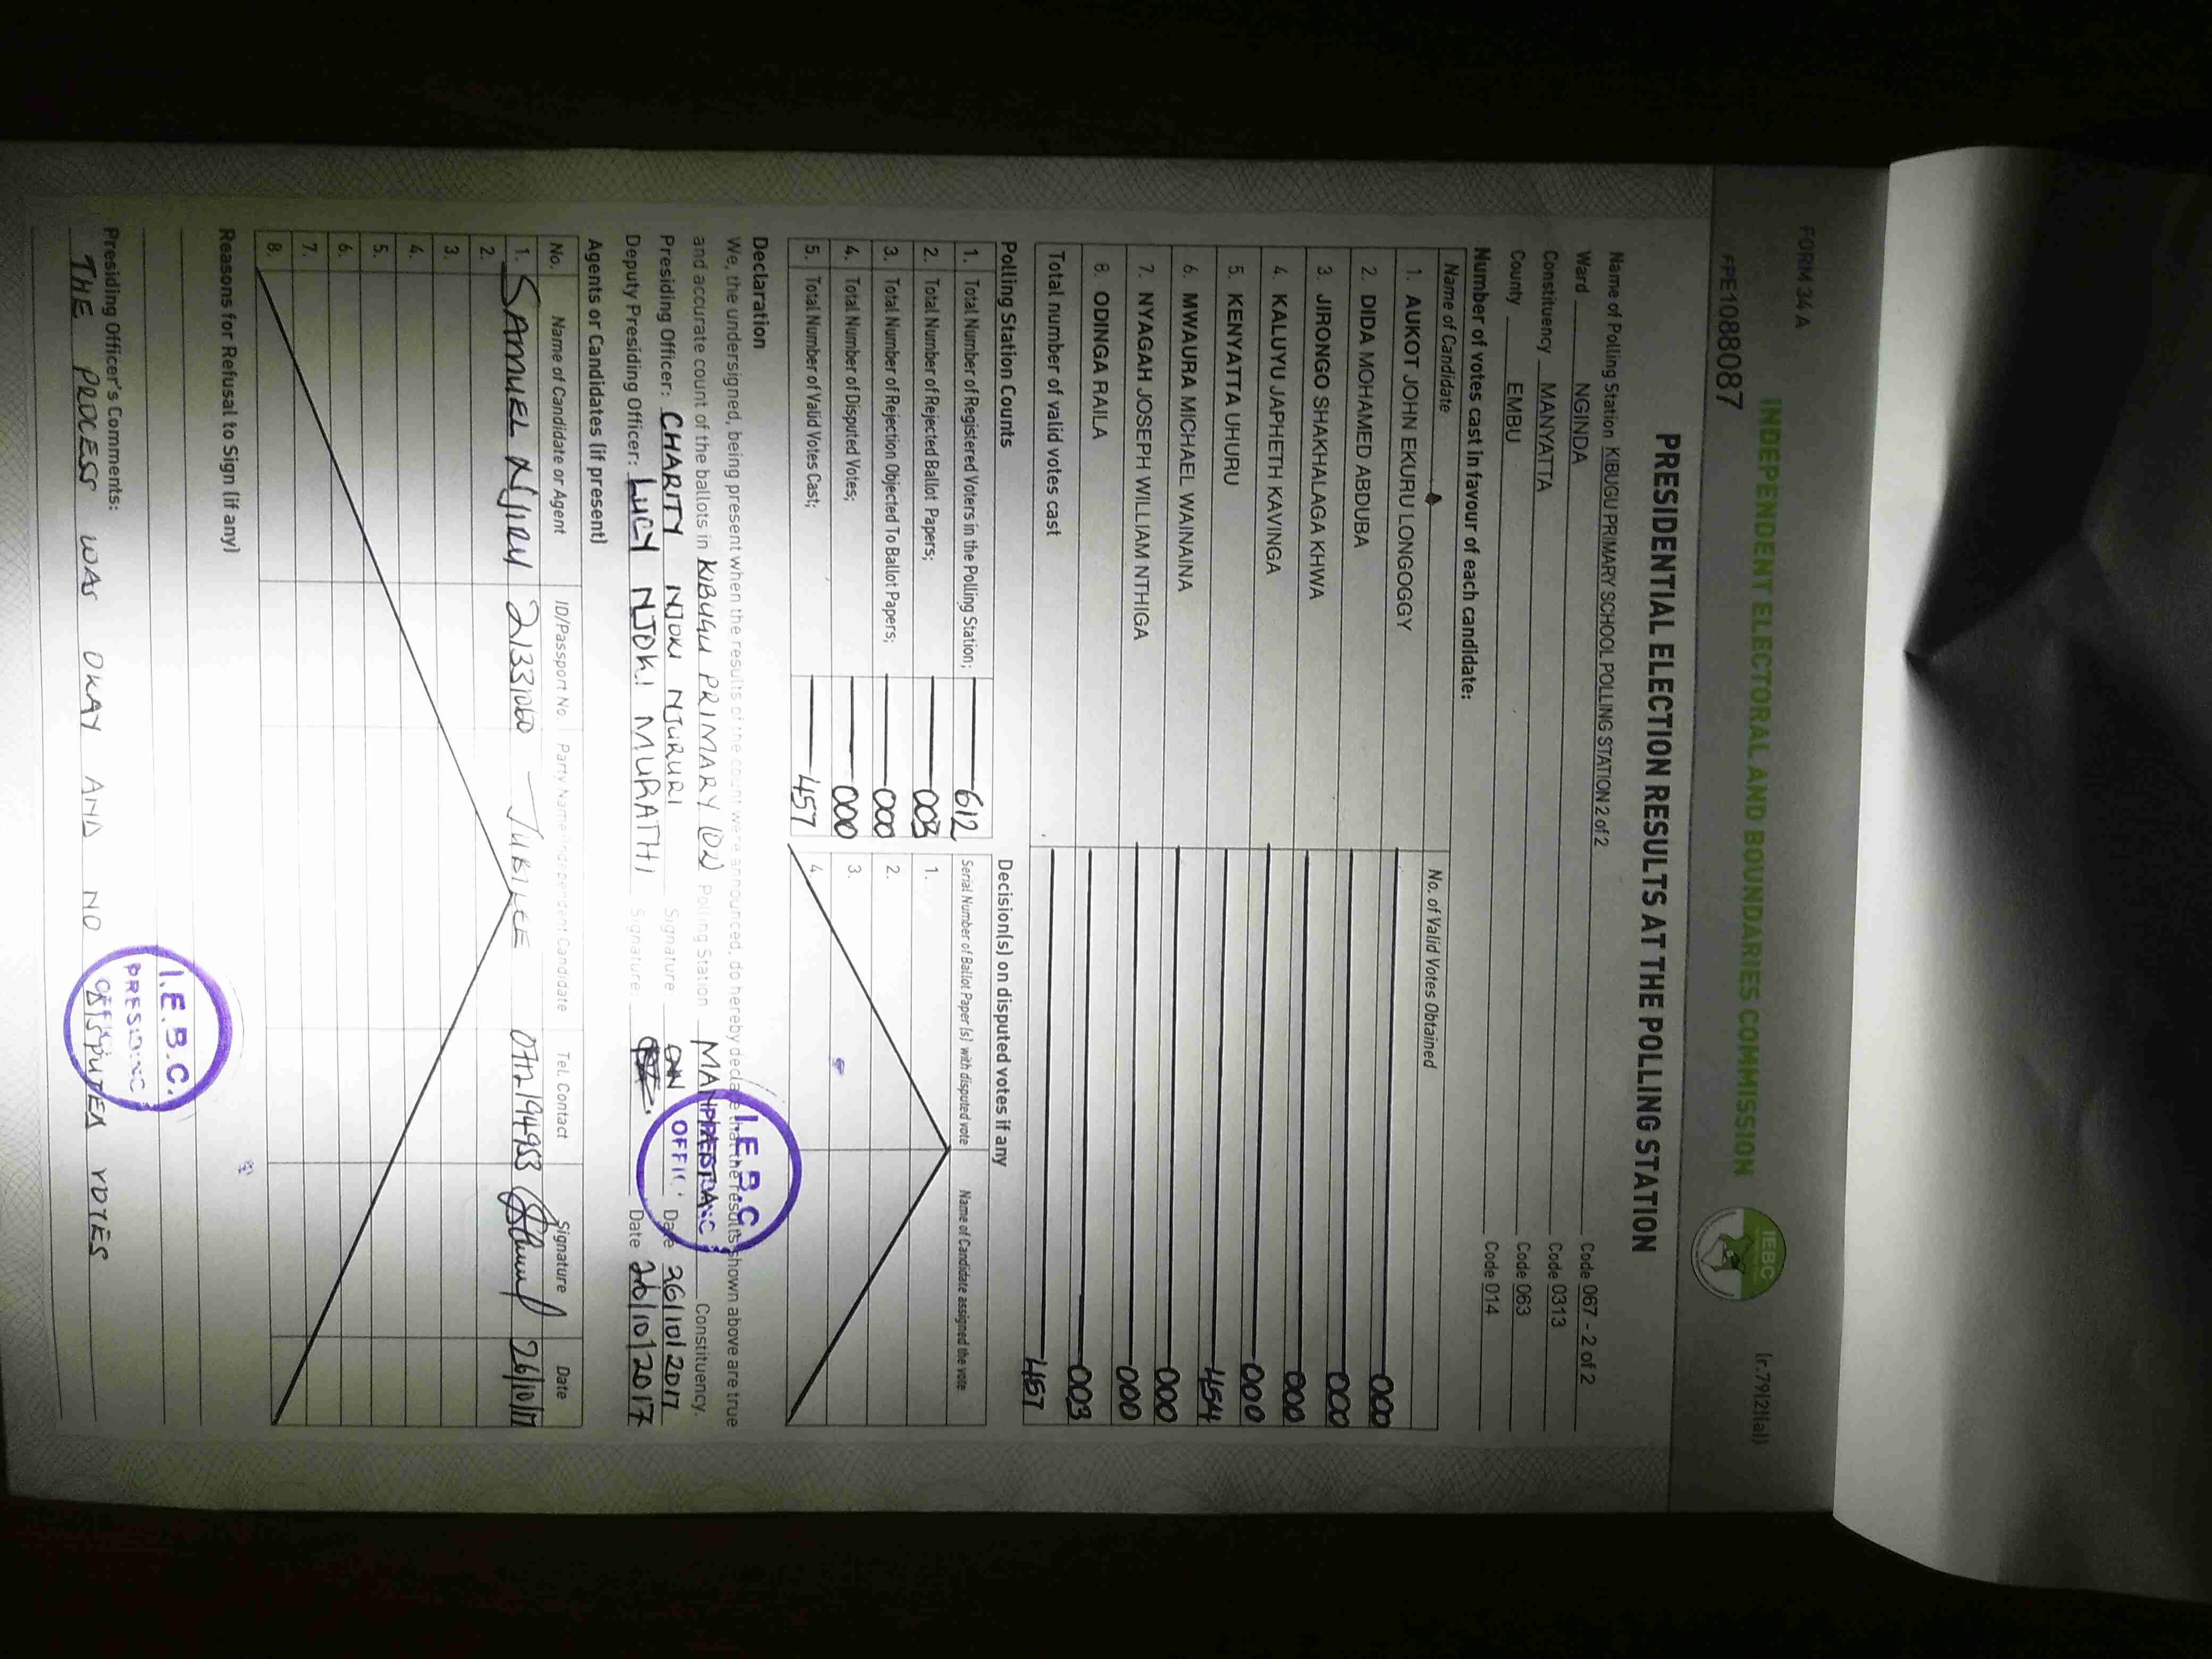 FORM 34 A
(r.79(2)(a))
INDEPENDENT ELECTORAL AND BOUNDARIES COMMISSION
IEBC
FPE1088087
PRESIDENTIAL ELECTION RESULTS AT THE POLLING STATION
Name of Polling Station KIBUGU PRIMARY SCHOOL POLLING STATION 2 of 2 Code 067 - 2 of 2
Ward NGINDA Code 0313
Constituency MANYATTA Code 063
County EMBU Code 014
Number of votes cast in favour of each candidate:
Name of Candidate No. of Valid Votes Obtained
1. AUKOT JOHN EKURU LONGOGGY 000
2. DIDA MOHAMED ABDUBA 000
3. JIRONGO SHAKHALAGA KHWA 000
4. KALUYU JAPHETH KAVINGA 000
5. KENYATTA UHURU 454
6. MWAURA MICHAEL WAINAINA 000
7. NYAGAH JOSEPH WILLIAM NTHIGA 000
8. ODINGA RAILA 003
Total number of valid votes cast 457
Polling Station Counts Decision(s) on disputed votes if any
1. Total Number of Registered Voters in the Polling Station; 612 Serial Number of Ballot Paper (s) with disputed vote Name of Candidate assigned the vote
2. Total Number of Rejected Ballot Papers; 003 1.
3. Total Number of Rejection Objected To Ballot Papers; 000 2.
4. Total Number of Disputed Votes; 000 3.
5. Total Number of Valid Votes Cast; 457 4.
Declaration
We, the undersigned, being present when the results of the count were announced, do hereby declare that the results shown above are true
and accurate count of the ballots in KIBUGU PRIMARY (02) Polling Station MANYATTA Constituency.
Presiding Officer: CHARITY NJOKI NJURURI Signature: Date 26/10/2017
Deputy Presiding Officer: LUCY NJOKI MURATHI Signature: Date 26/10/2017
I.E.B.C.
PRESIDING
OFFIC
Agents or Candidates (if present)
No. Name of Candidate or Agent ID/Passport No. Party Name/Independent Candidate Tel. Contact Signature Date
1. SAMUEL NJIRU 21331060 JUBILEE 0712194953 26/10/17
2.
3.
4.
5.
6.
7.
8.
Reasons for Refusal to Sign (if any)
I.E.B.C.
PRESIDING
Presiding Officer's Comments:
THE PROCESS WAS OKAY AND NO DISPUTED VOTES